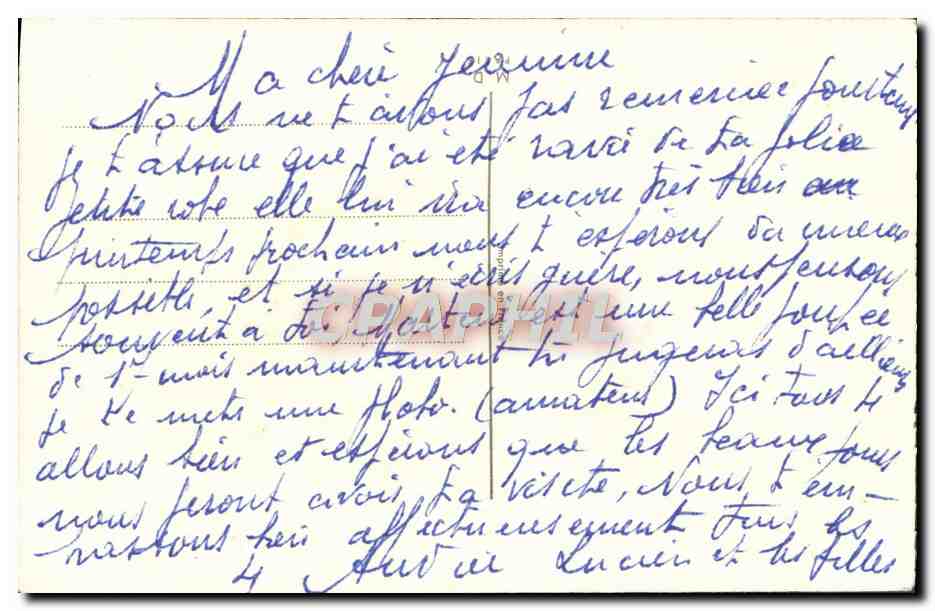 Ma chère Jeannine
Nous ne t'avons pas remerciée pourtant
je t'assure que j'ai été ravie de ta jolie
petite robe elle lui ira encore très bien au
printemps prochain nous t'espérons en
possible, et si je n'écris guère, nous pensons
souvent à toi est une belle poupée
de mois maintenant tu jugeras d'ailleurs
je te mets une photo. (amateurs) Ici tous 4
allons bien et espérons que les beaux jours
nous feront avoir ta visite, Nous t'em-
rassons bien affectueusement tous les
4 Lucien et les filles
CPAPHIL
Imprimé en France
M D